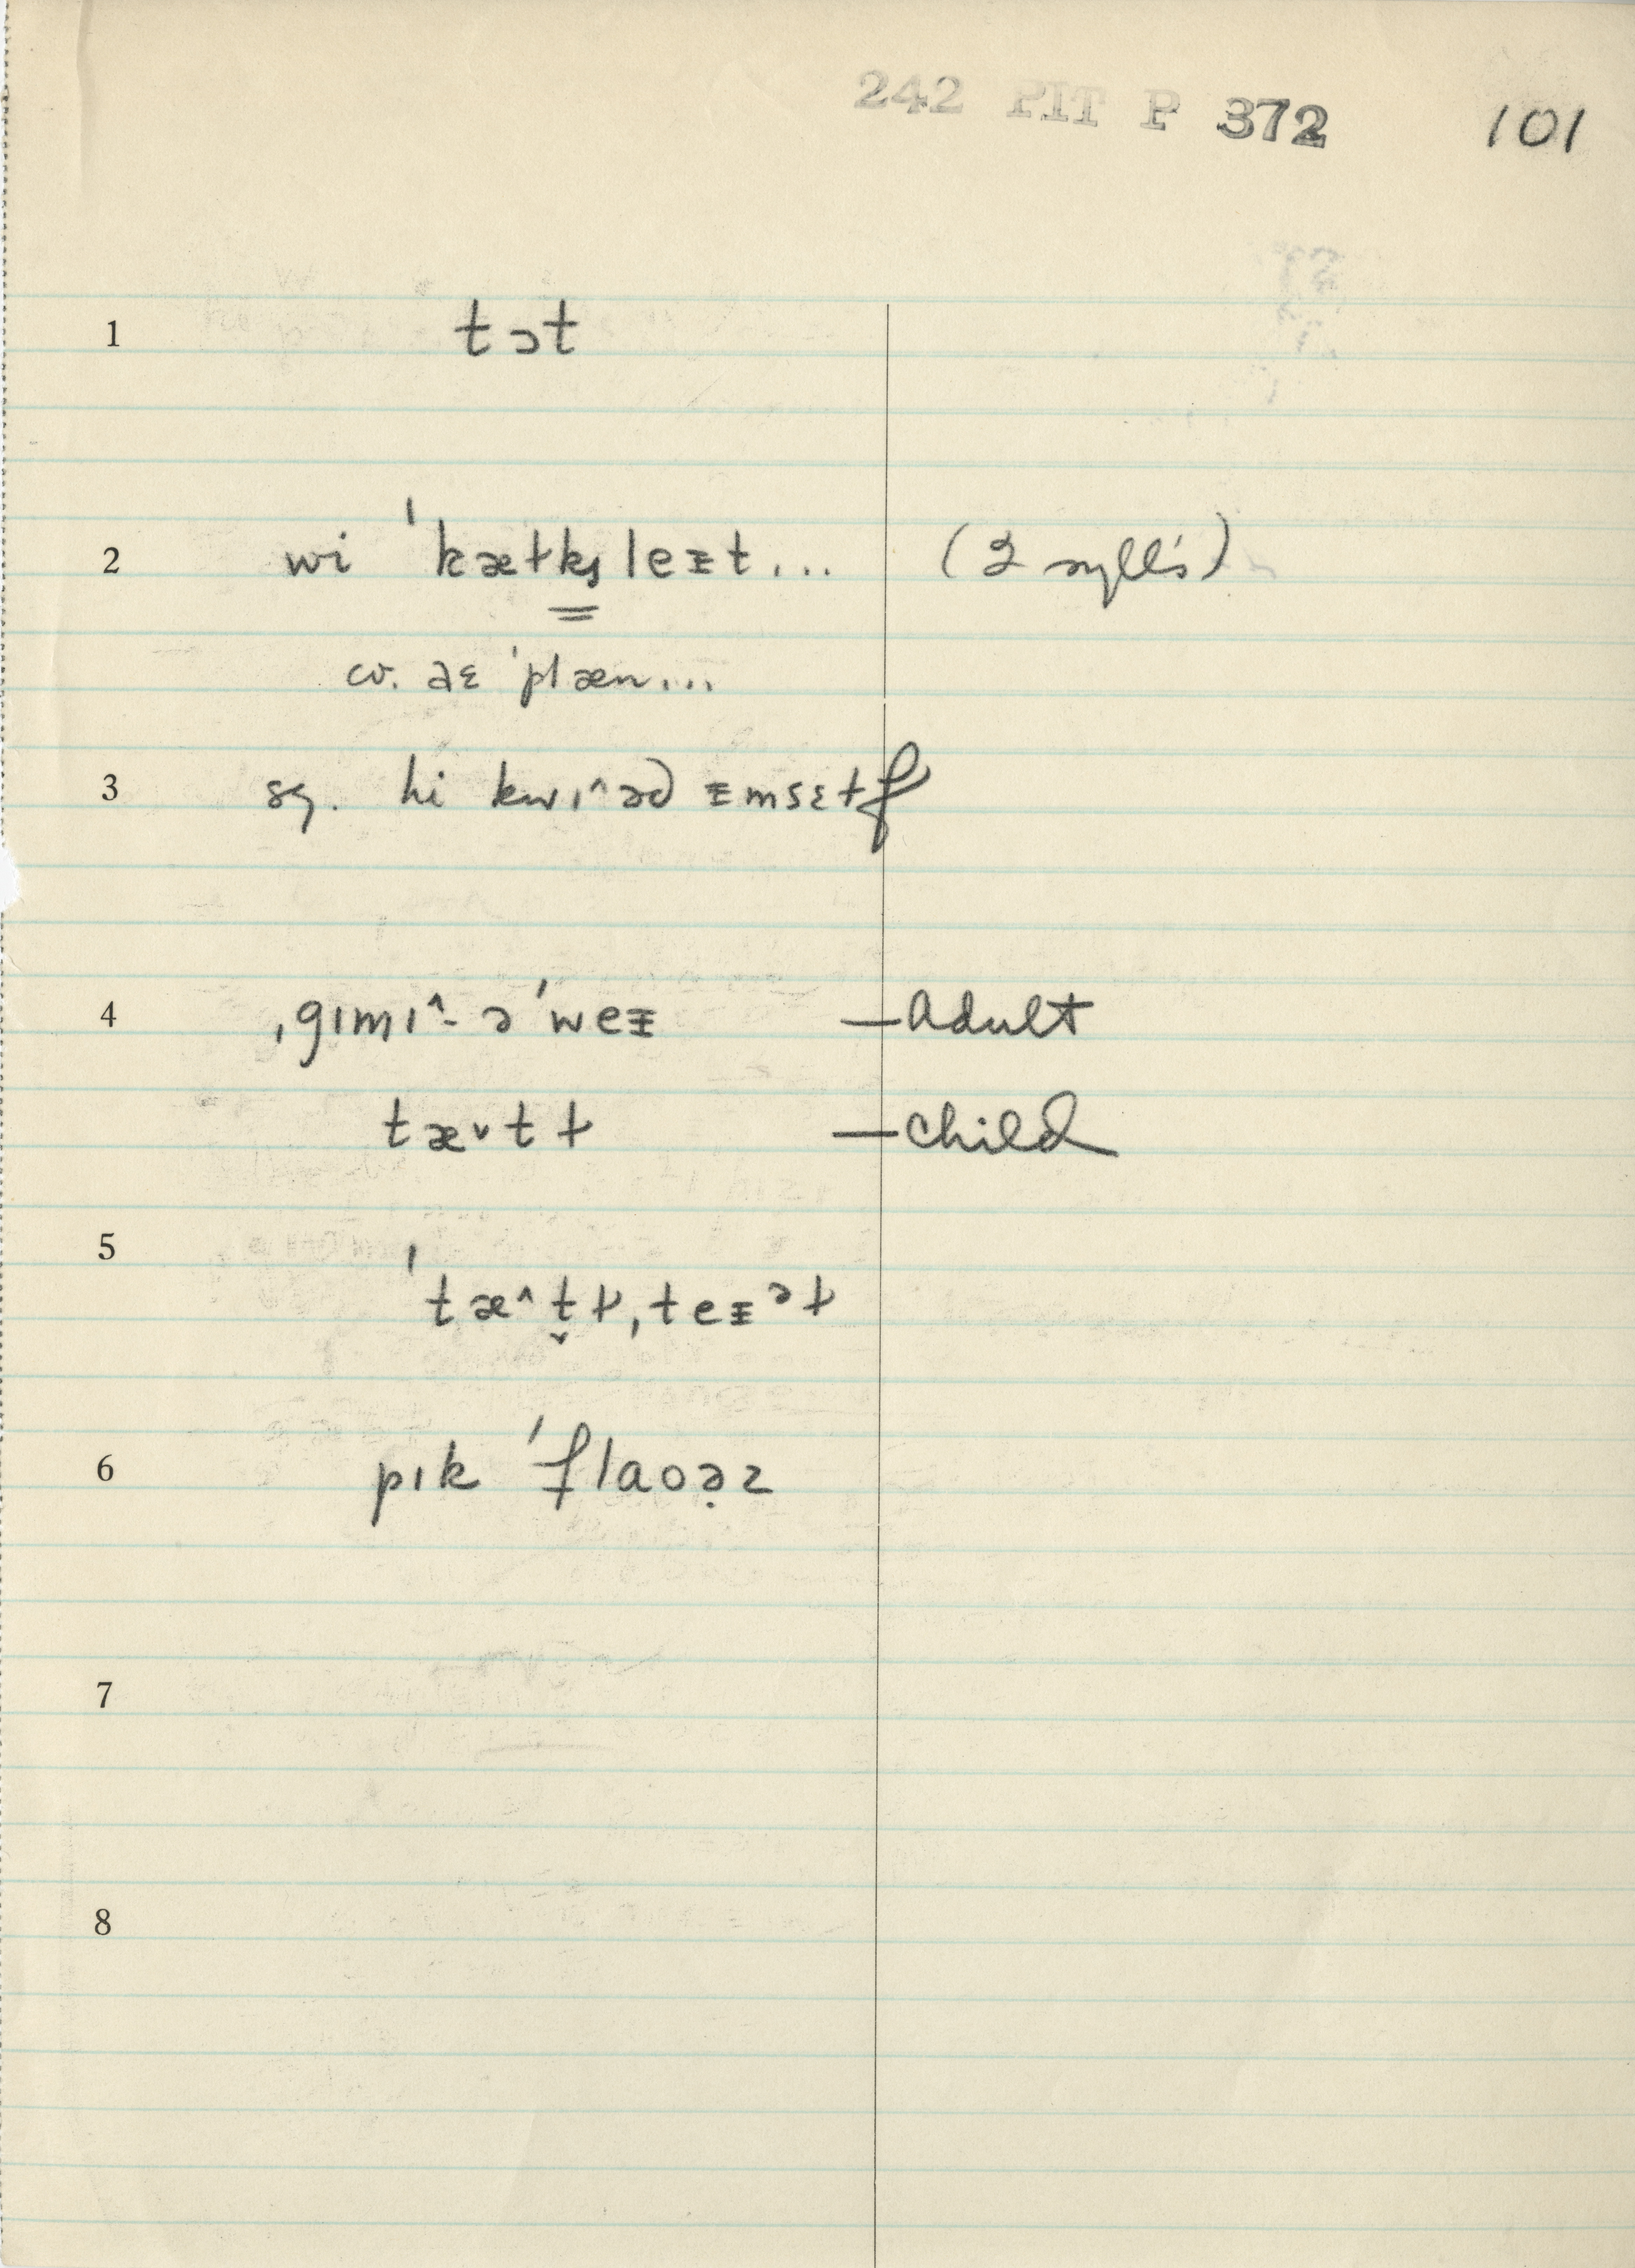 242 PIT P 372 101
1 tɔt
2 wi ˈkætks leᵻt... (2 syll's)
cv. əɛ ˈplæn...
3 sg. hi kwɪ^əd ᵻmsɛɫf
4 ˌgɪmɪ^- ə ˈweᵻ —Adult
tæ˅tɫ —Child
5 ˈtæ^t̬ɫˌteᵻᵊɫ
6 pɪk ˈflaoə̣z
7
8